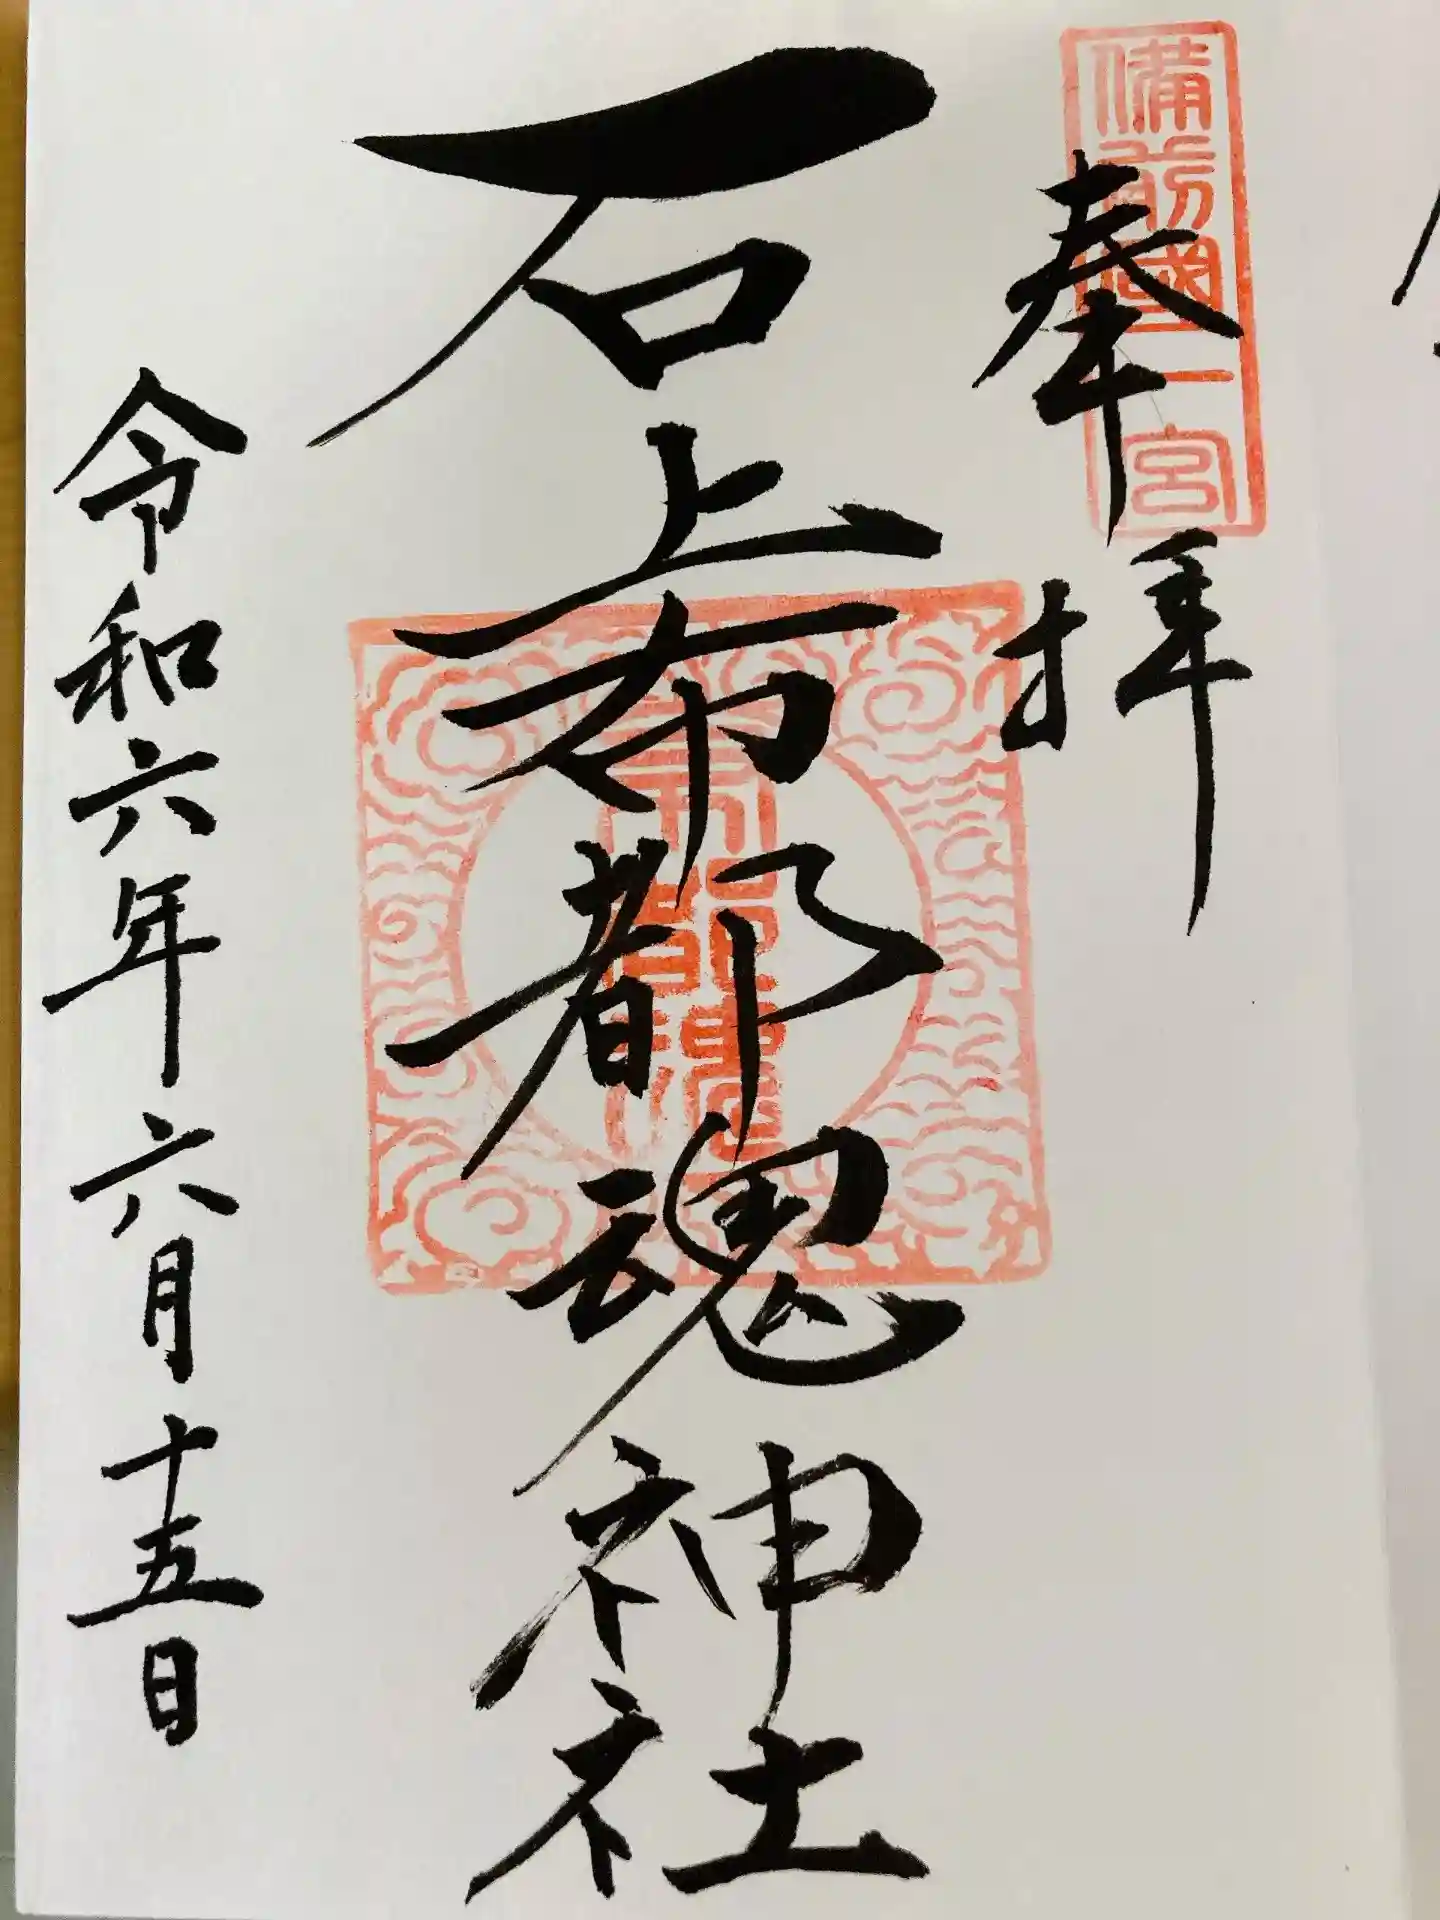 備前國一宮
奉拝
石上布都魂神社
令和六年六月十五日